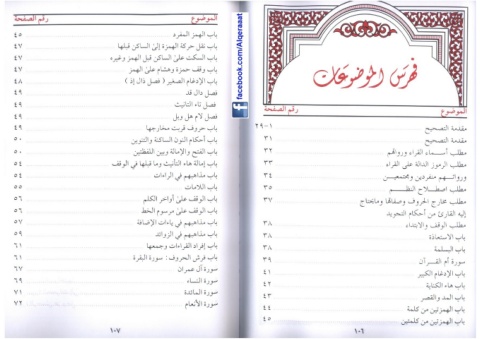 فهرس الموضوعات
الموضوع رقم الصفحة
مقدمة التصحيح ١-٢٩
مقدمة التصحيح ٣١
مطلب أسماء القراء ورواتهم ٣٢
مطلب الرموز الدالة على القراء ٣٣
ورواتهم منفردين ومجتمعين ٣٤
مطلب اصطلاح النظم ٣٥
مطلب مخارج الحروف وصفاتها ومايحتاج ٣٧
إليه القارئ من أحكام التجويد
مطلب الوقف والابتداء ٣٨
باب الاستعاذة ٣٨
باب البسملة ٣٨
سورة أم القرآن ٣٩
باب الإدغام الكبير ٤١
باب هاء الكناية ٤٢
باب المد والقصر ٤٣
باب الهمزتين من كلمة ٤٤
باب الهمزتين من كلمتين ٤٥
١٠٦
facebook.com/Alqeraaat
الموضوع رقم الصفحة
باب الهمز المفرد ٤٥
باب نقل حركة الهمزة إلى الساكن قبلها ٤٧
باب السكت على الساكن قبل الهمز وغيره ٤٧
باب وقف حمزة وهشام على الهمز ٤٧
باب الإدغام الصغير ( فصل ذال إذ ) ٤٨
فصل دال قد ٤٩
فصل تاء التأنيث ٤٩
فصل لام هل وبل ٤٩
باب حروف قربت مخارجها ٤٩
باب أحكام النون الساكنة والتنوين ٥٠
باب الفتح والإمالة وبين اللفظين ٥٠
باب إمالة هاء التأنيث وما قبلها في الوقف ٥٤
باب مذاهبهم في الراءات ٥٤
باب اللامات ٥٥
باب الوقف على أواخر الكلم ٥٥
باب الوقف على مرسوم الخط ٥٦
باب مذاهبهم في ياءات الإضافة ٥٧
باب مذاهبهم في الزوائد ٥٩
باب إفراد القراءات وجمعها ٦١
باب فرش الحروف : سورة البقرة ٦١
سورة آل عمران ٦٧
سورة النساء ٦٩
سورة المائدة ٧١
سورة الأنعام ٧٢
١٠٧